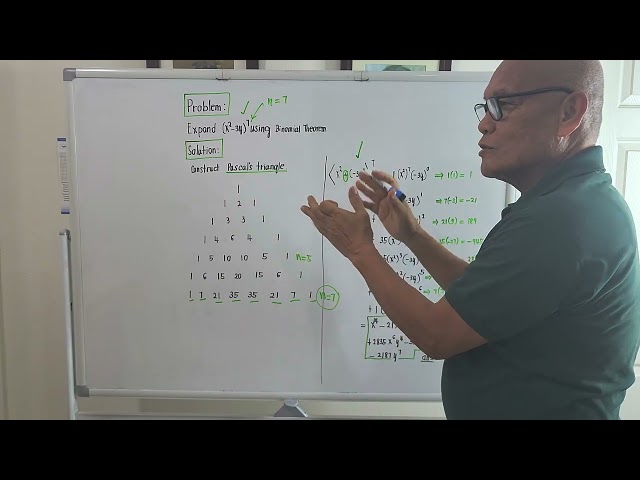 Problem:
n = 7
Expand (x²-3y)⁷ using Binomial Theorem
Solution:
Construct Pascal's triangle
1
1 2 1
1 3 3 1
1 4 6 4 1
1 5 10 10 5 1 n=5
1 6 15 20 15 6 1
1 7 21 35 35 21 7 1 n=7
1 (x²)⁷(-3y)⁰ ⇒ 1(1) = 1
-3y)¹ ⇒ 7(-3) = -21
21(9) = 189
35(x
35(-27) = -945
(x²)³(-3y)
)²(-3y)⁵ ⇒
⁶ ⇒ 7(
+ 1(
= x¹⁴ - 21
+ 2835 x⁶y⁴
- 2187 y⁷ ans